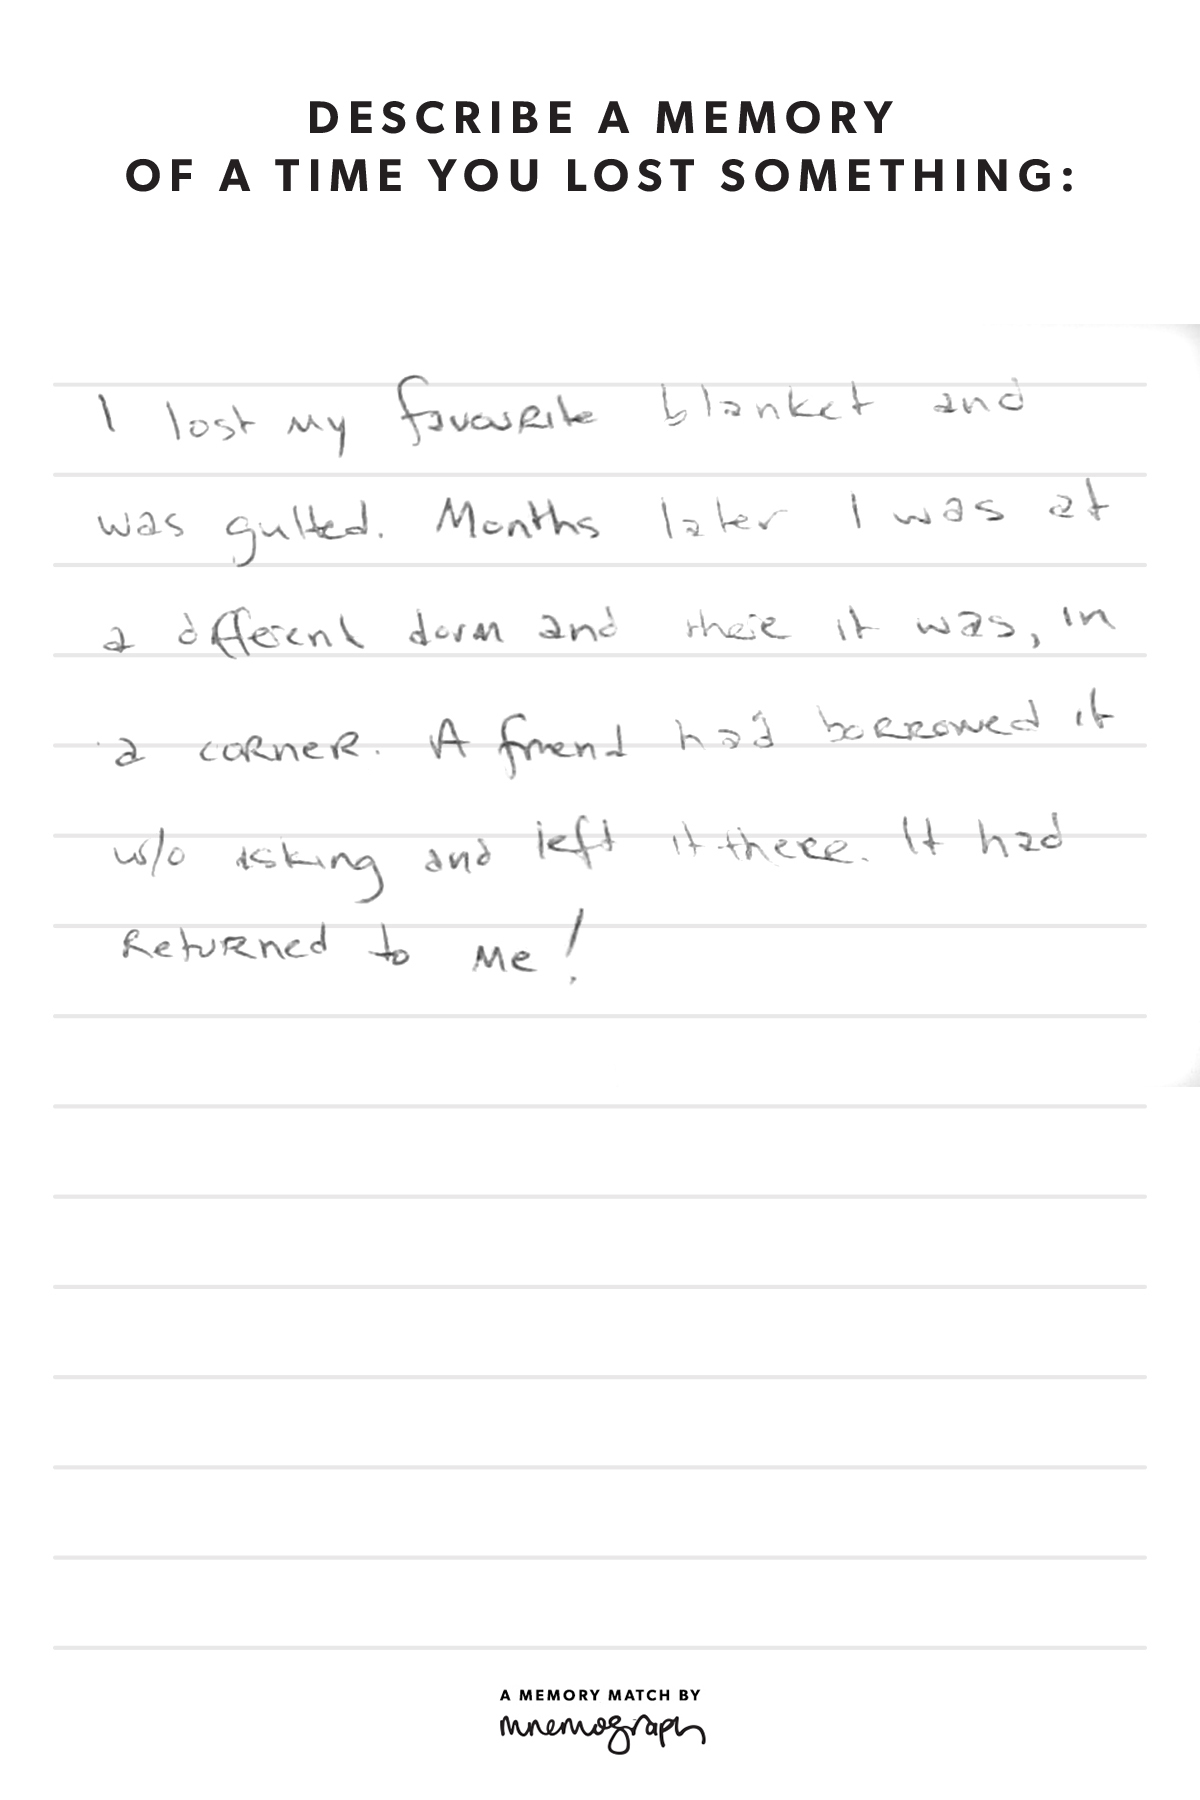 DESCRIBE A MEMORY
OF A TIME YOU LOST SOMETHING:
I lost my favourite blanket and
was gutted. Months later I was at
a different dorm and there it was, in
a corner. A friend had borrowed it
w/o asking and left it there. It had
Returned to me!
A MEMORY MATCH BY
mnemograph